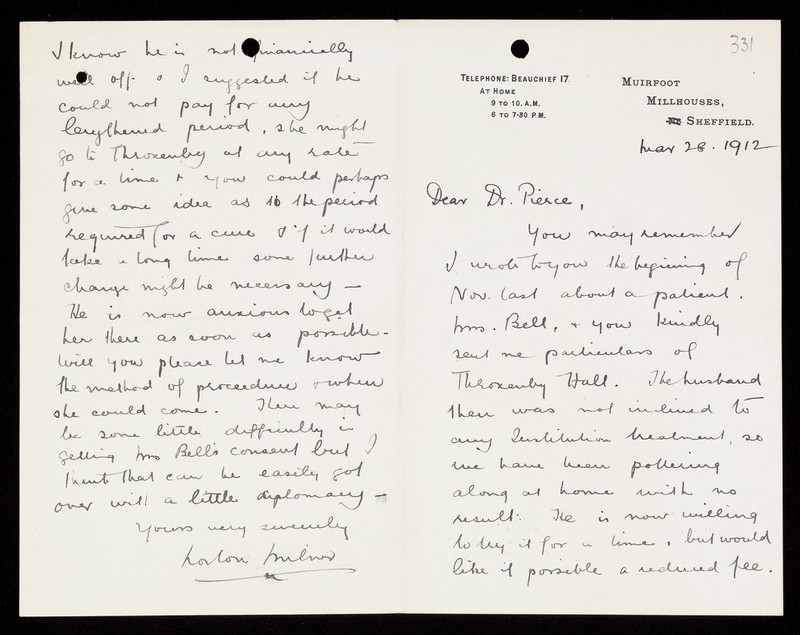 331
TELEPHONE: BEAUCHIEF 17.
AT HOME
9 TO 10. A.M.
6 TO 7-30 P.M.
MUIRFOOT
MILLHOUSES,
SHEFFIELD.
Mar 28. 1912
Dear Dr. Pierce,
You may remember
I wrote to you the beginning of
Nov. last about a patient.
Mrs. Bell, & you kindly
sent me particulars of
Throxenby Hall. The husband
then was not inclined to
any Institution treatment, so
we have been pottering
along at home with no
result. He is now willing
to try it for a time, but would
like if possible a reduced fee.
I know he is not financially
well off & I suggested if he
could not pay for any
lengthened period, she might
go to Throxenby at any rate
for a time & you could perhaps
give some idea as to the period
required for a cure & if it would
take a long time some further
change might be necessary —
He is now anxious to get
her there as soon as possible -
Will you please let me know
the method of proceedure & when
she could come. There may
be some little difficulty in
getting Mrs Bell's consent but I
think that can be easily got
over with a little diplomacy —
Yours very sincerely
Milner